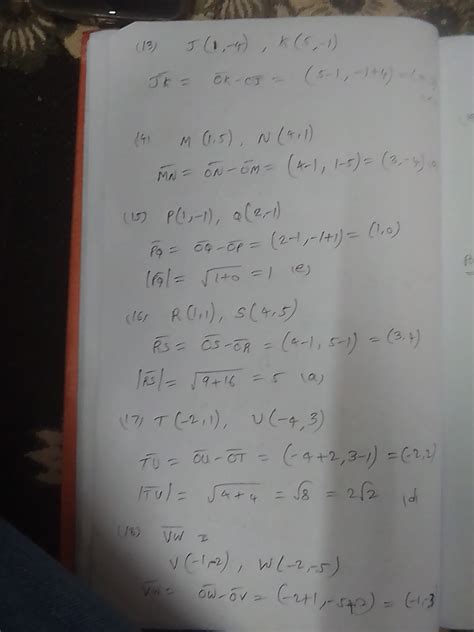 (13) J(1,-4) , K(5,-1)
J̄K̄ = ŌK̄-ŌJ̄ = (5-1, -1+4) =
(4) M(1,5), N(4,1)
M̄N̄ = ŌN̄-ŌM̄ = (4-1, 1-5) = (3,-4)
(15) P(1,-1), Q(2,-1)
P̄Q̄ = ŌQ̄-ŌP̄ = (2-1,-1+1) = (1,0)
|P̄Q̄| = √1+0 = 1 (e)
(16) R(1,1), S(4,5)
R̄S̄ = ŌS̄-ŌR̄ = (4-1, 5-1) = (3,4)
|R̄S̄| = √9+16 = 5 (a)
(17) T(-2,1), U(-4,3)
T̄Ū = ŌŪ-ŌT̄ = (-4+2, 3-1) = (-2,2)
|T̄Ū| = √4+4 = √8 = 2√2 (d)
(18) V̄W̄ =
V(-1,-2), W(-2,-5)
V̄W̄ = ŌW̄-ŌV̄ = (-2+1, -5+2) = (-1,-3